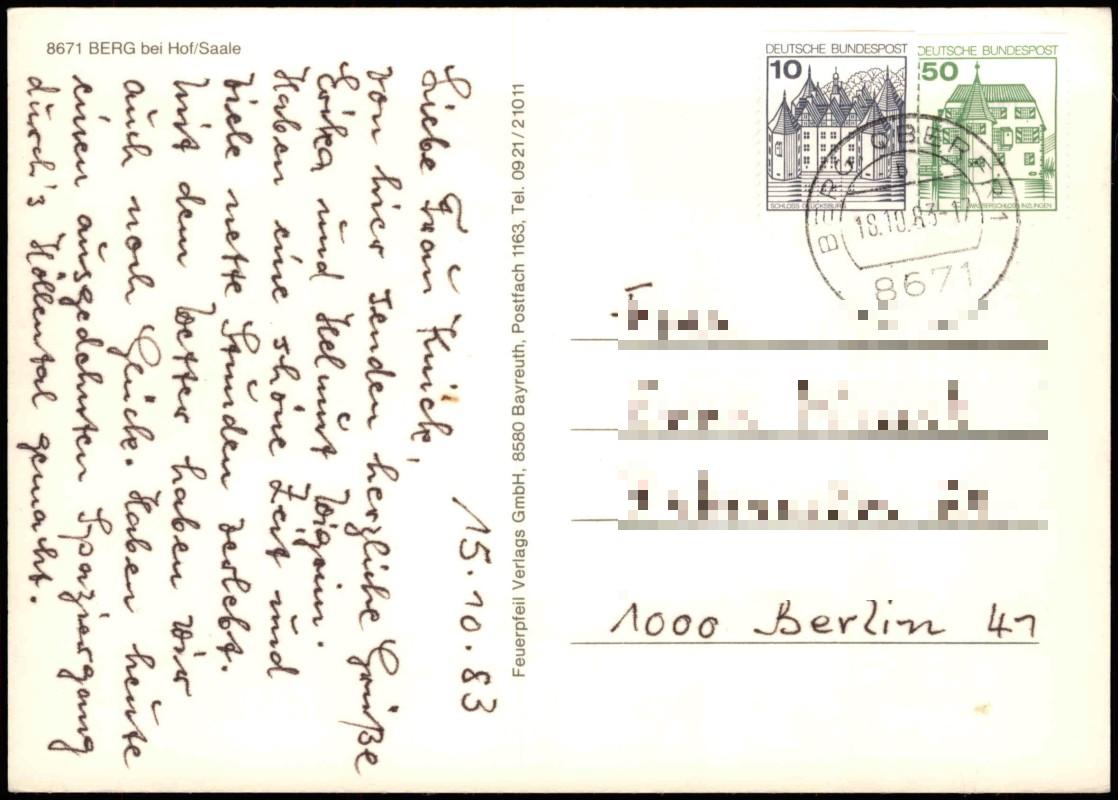 8671 BERG bei Hof/Saale
15.10.83
Liebe Frau Kuick,
von hier senden herzliche Grüße
Erika und Helmut Wigoin.
Haben eine schöne Zeit und
viele nette Stunden verlebt.
Mit dem Wetter haben wir
auch noch Glück. Haben heute
einen ausgedehnten Spaziergang
durch's Höllental gemacht.
Feuerpfeil Verlags GmbH, 8580 Bayreuth, Postfach 1163, Tel. 09 21 / 2 10 11
DEUTSCHE BUNDESPOST
10
SCHLOSS GLÜCKSBURG
DEUTSCHE BUNDESPOST
50
WASSERSCHLOSS INZLINGEN
BERG OBERFR 1
b
18.10.83-17
8671
1000 Berlin 41